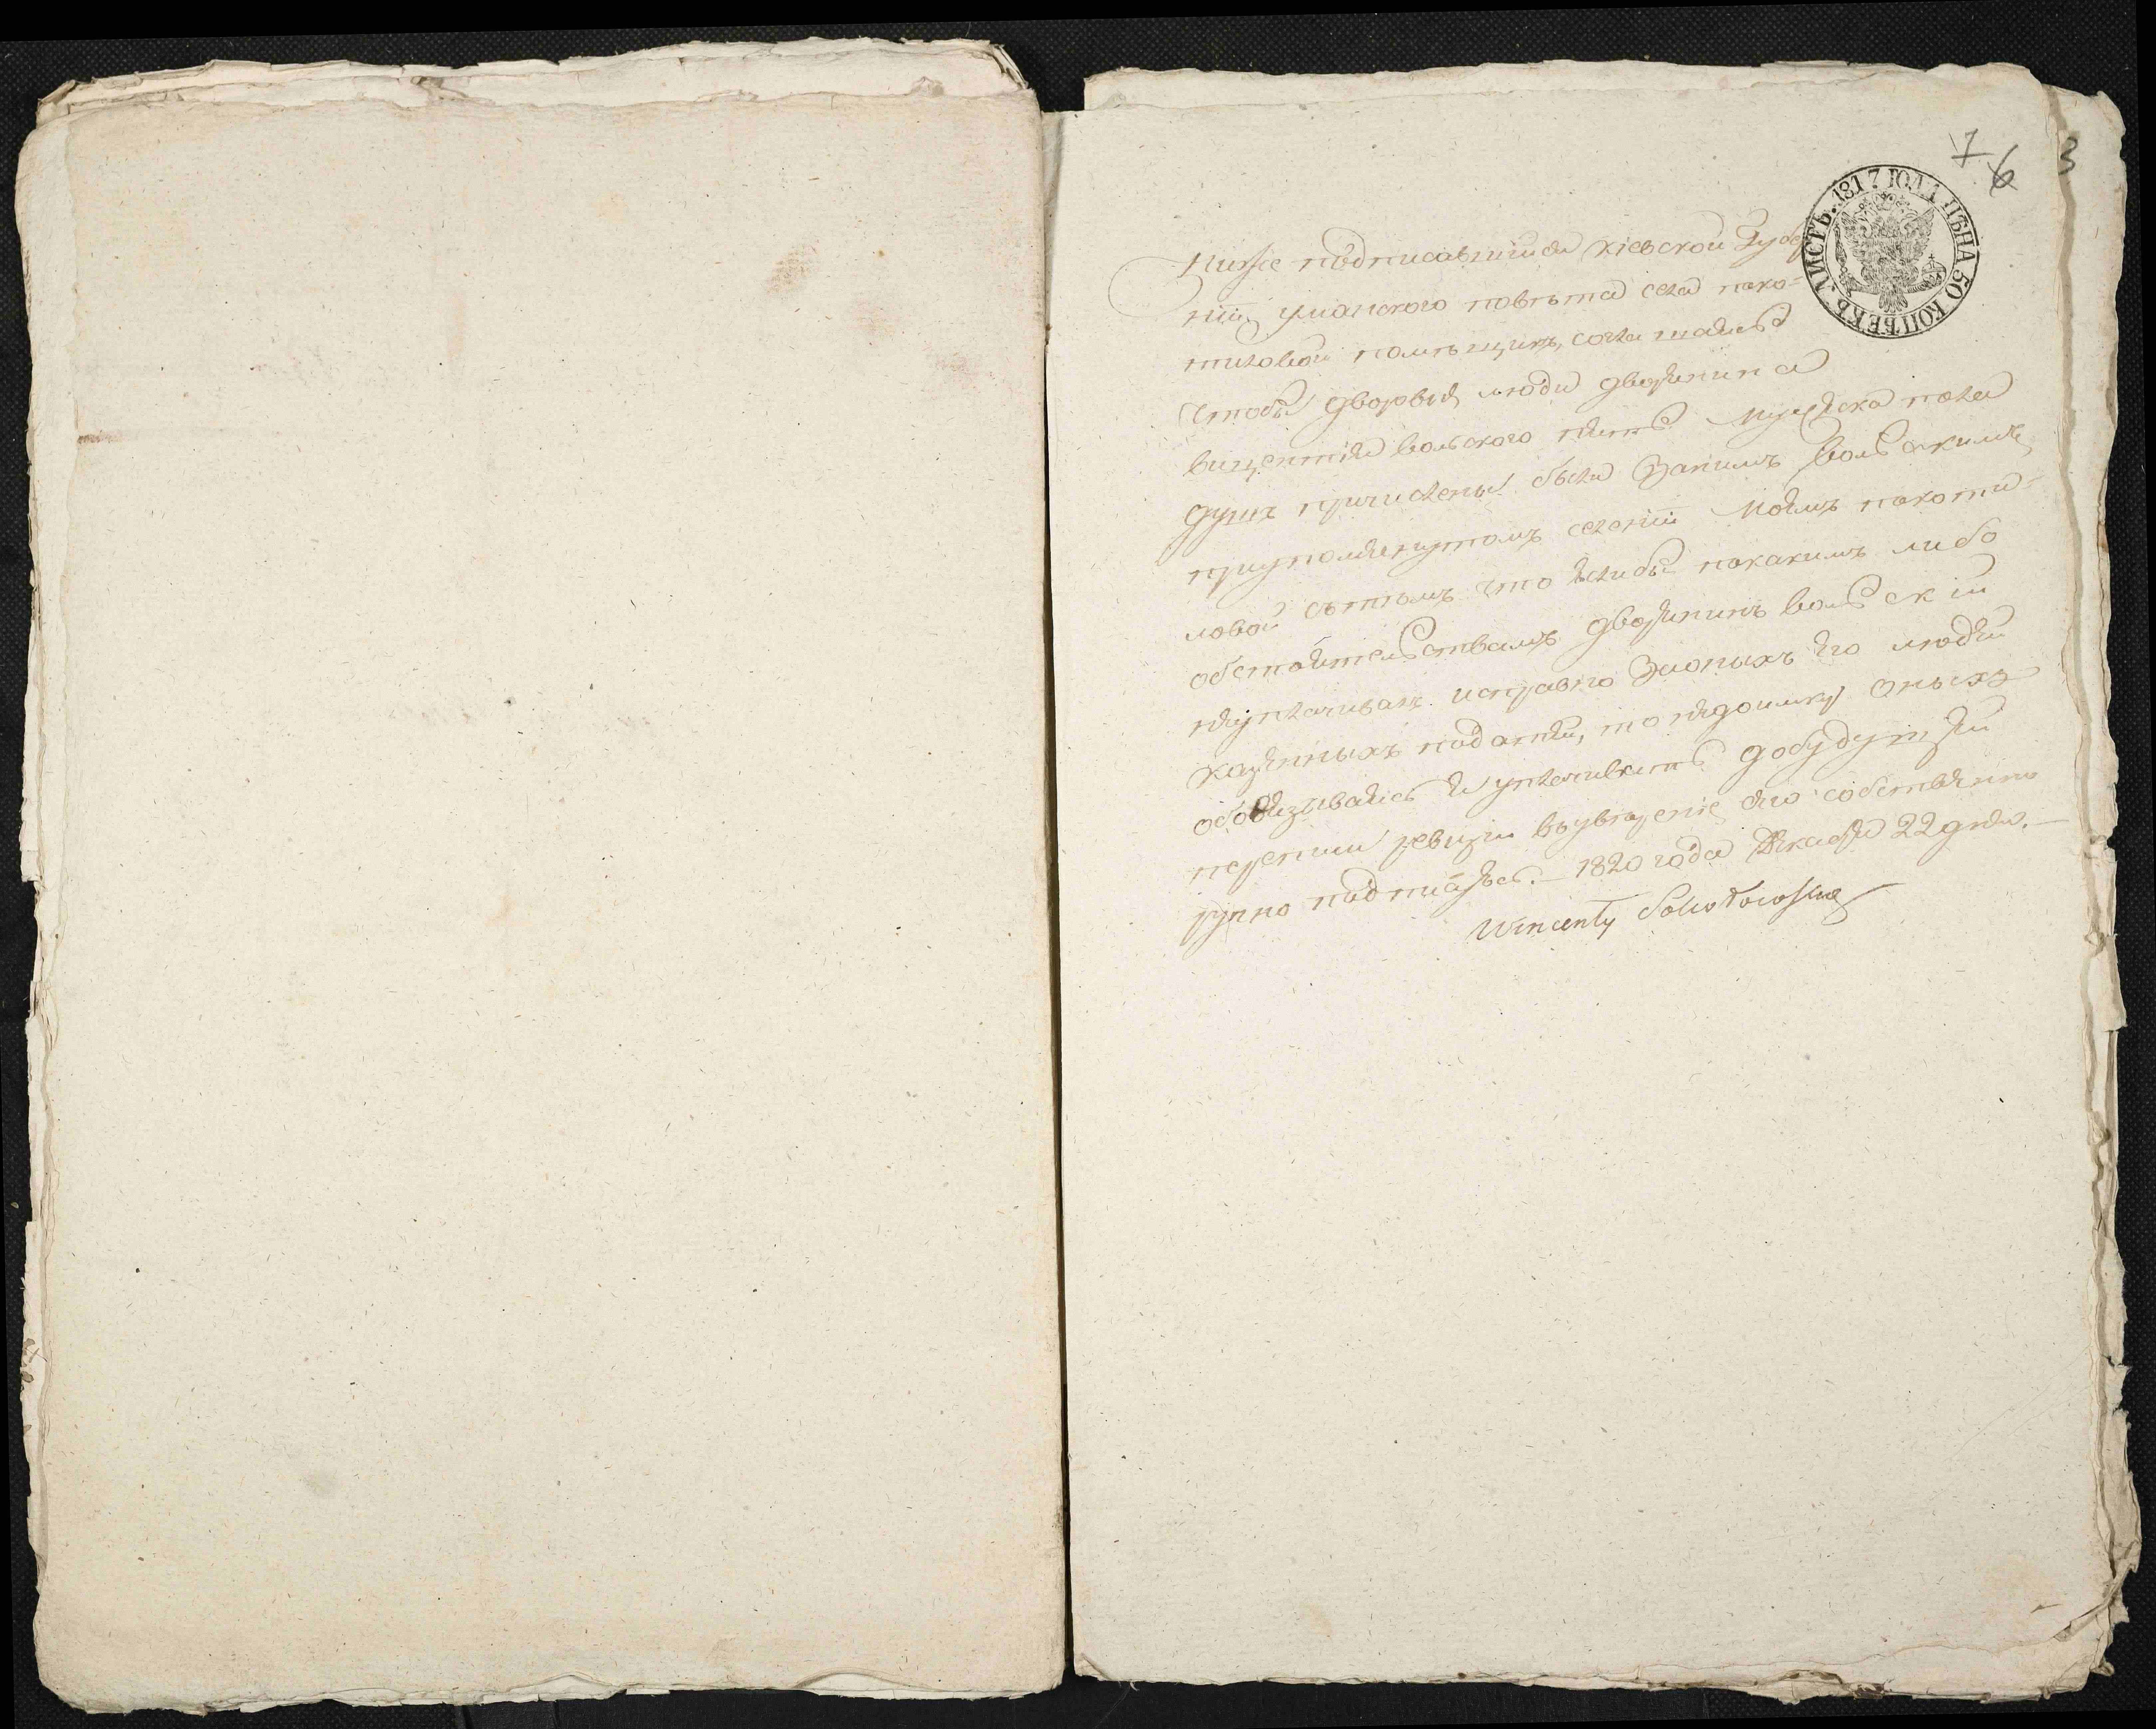 7 6 3
ЛИСТЪ. 1817 ГОДА ЦѢНА 50 КОПѢЕКЪ.
Ниже подписавшийся кіевской Губер
ніи уманского повѣта села поко-
тиловой помѣщикъ, соглашаюсь
чтобы дворовыя люди дворянина
вицентія вольского пять мужеска пола
душъ причислены были Занимъ вольскимъ
приупомянутомъ селеніи моемъ покоти-
ловой стѣмъ что ѣслибы покакимъ либо
обстоятельствамъ дворянинъ вольскій
неуплачивалъ исправно Заоныхъ его людей
казенныхъ податей, то недоимку оныхъ
обовязываюсь я уплачивать добудущей
перепиши ревизіи вьувѣреніе чего собствѣнно
ручно подписуюсь. – 1820 года Декабря 22 дня. –
Wincenty Sokołowski